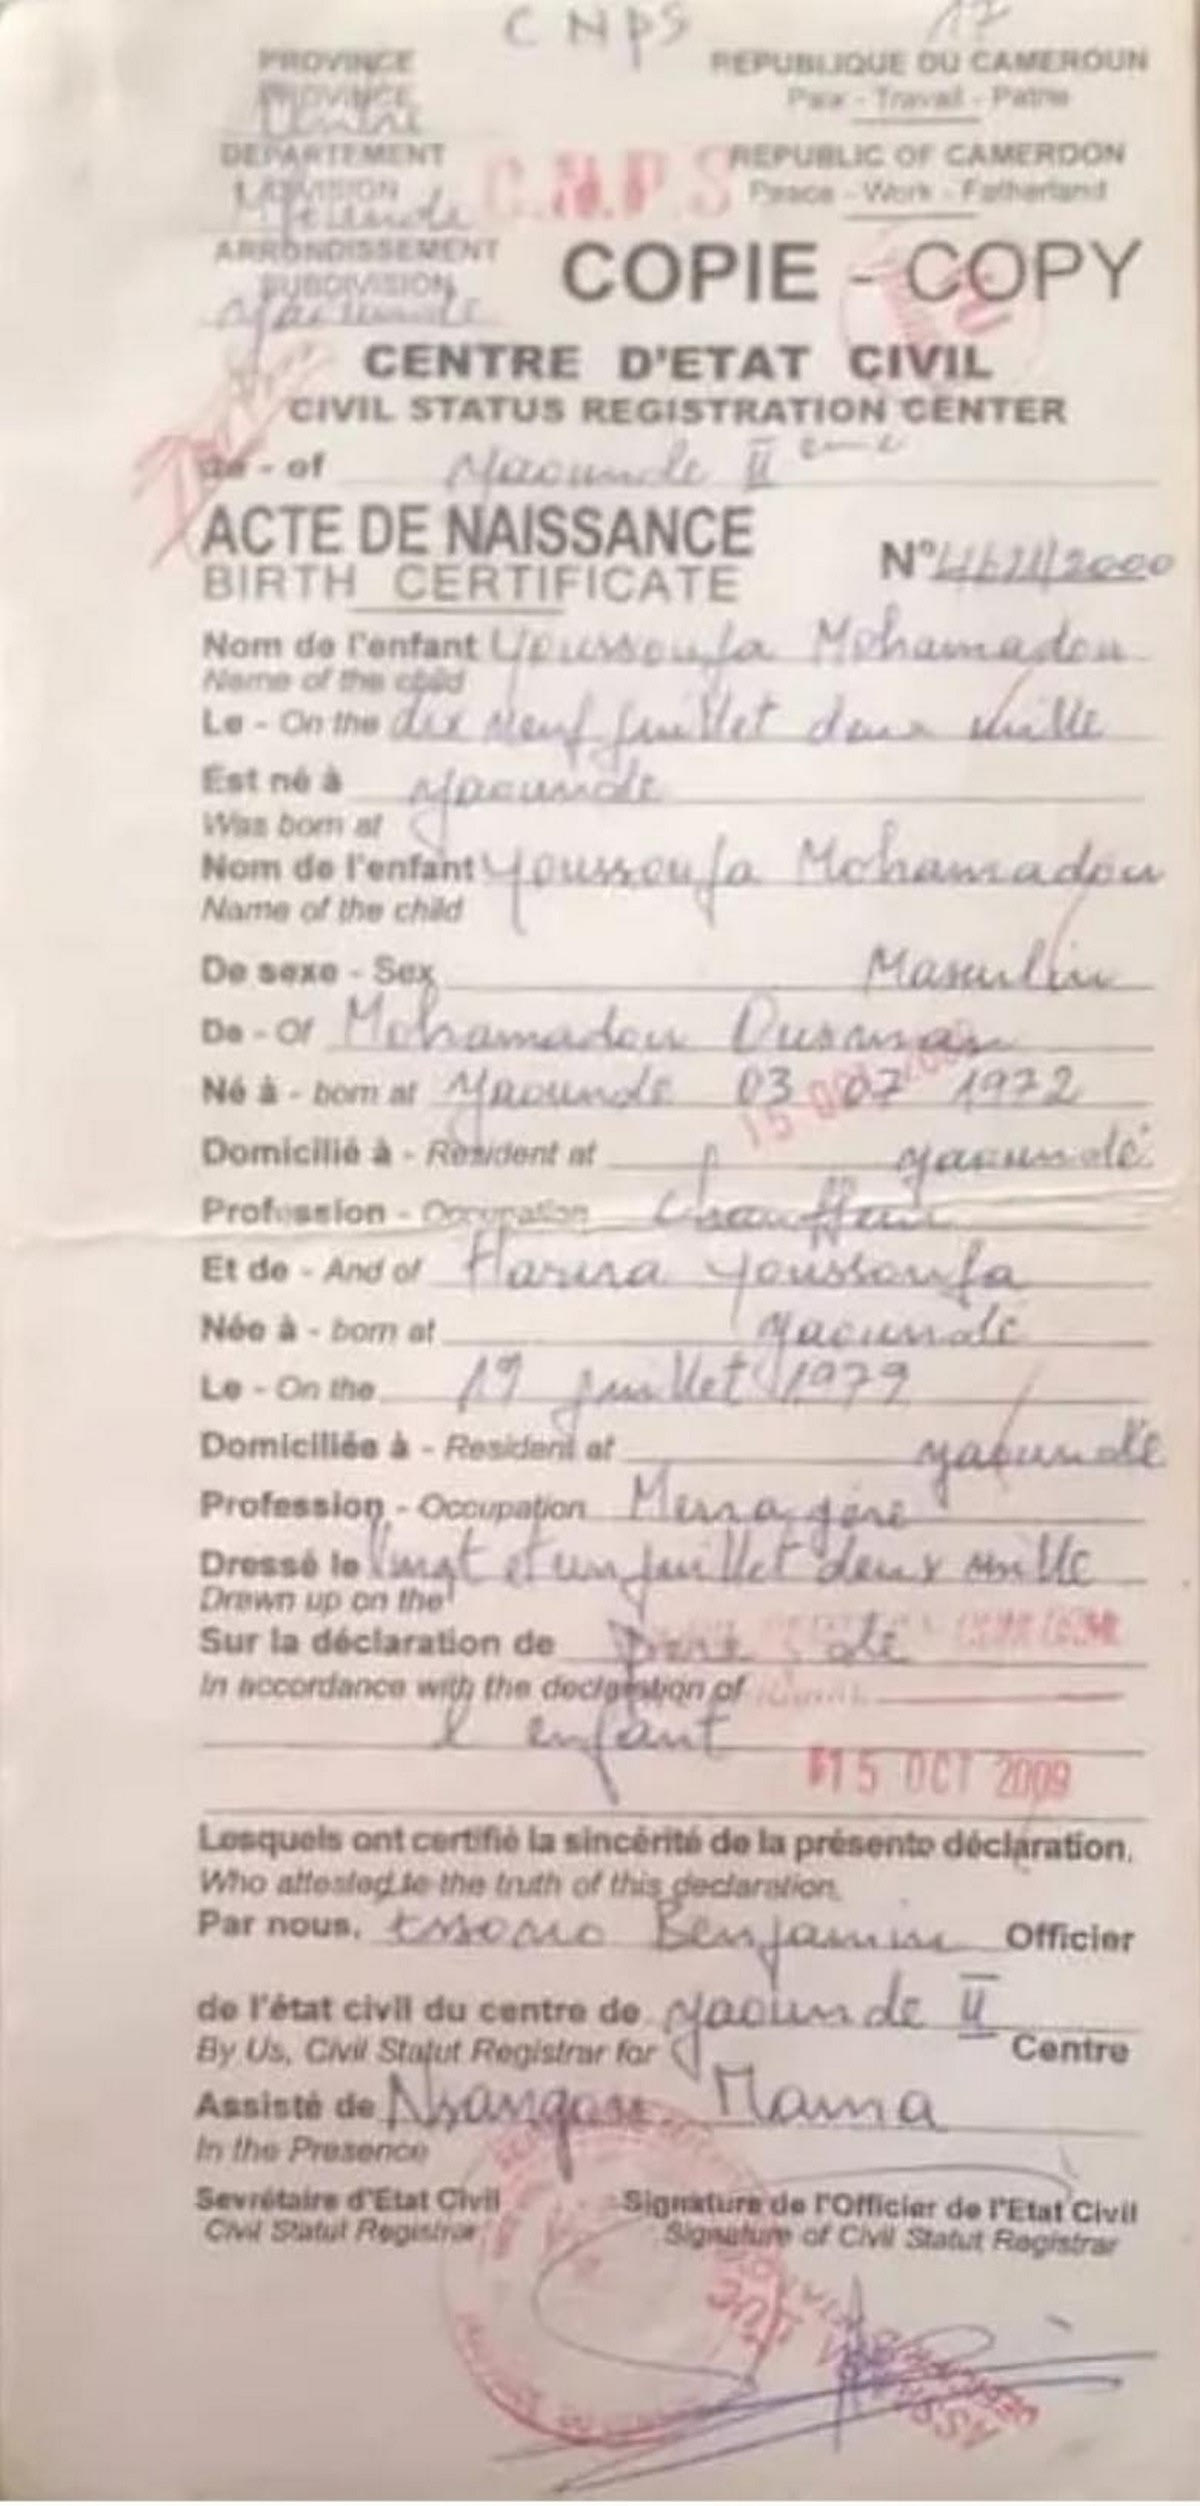 CNPS 17
PROVINCE
PROVINCE
Centre
DEPARTEMENT
DIVISION
ARRONDISSEMENT
SUBDIVISION
Yaounde
REPUBLIQUE DU CAMEROUN
Paix - Travail - Patrie
REPUBLIC OF CAMEROON
Peace - Work - Fatherland
C.N.P.S
COPIE - COPY
CENTRE D'ETAT CIVIL
CIVIL STATUS REGISTRATION CENTER
de - of Yaounde II eme
ACTE DE NAISSANCE
BIRTH CERTIFICATE
N° /2000
Nom de l'enfant Youssoufa Mohamadou
Name of the child
Le - On the dix neuf juillet deux mille
Est né à Yaoundé
Was born at
Nom de l'enfant Youssoufa Mohamadou
Name of the child
De sexe - Sex Masculin
De - Of Mohamadou Ousman
Né à - born at Yaoundé 03 07 1972
Domicilié à - Resident at Yaoundé
Profession - Occupation Chauffeur
Et de - And of Youssoufa
Née à - born at Yaoundé
Le - On the 19 juillet 1979
Domiciliée à - Resident at Yaoundé
Profession - Occupation Menagère
Dressé le Vingt et un juillet deux mille
Drawn up on the
Sur la déclaration de
In accordance with the declaration of
l enfant
15 OCT 2009
Lesquels ont certifié la sincérité de la présente déclaration.
Who attested to the truth of this declaration.
Par nous, Essomo Benjamin Officier
de l'état civil du centre de Yaounde II
By Us, Civil Statut Registrar for Centre
Assisté de Mama
In the Presence
Sevrétaire d'Etat Civil
Civil Statut Registrar
Signature de l'Officier de l'Etat Civil
Signature of Civil Statut Registrar